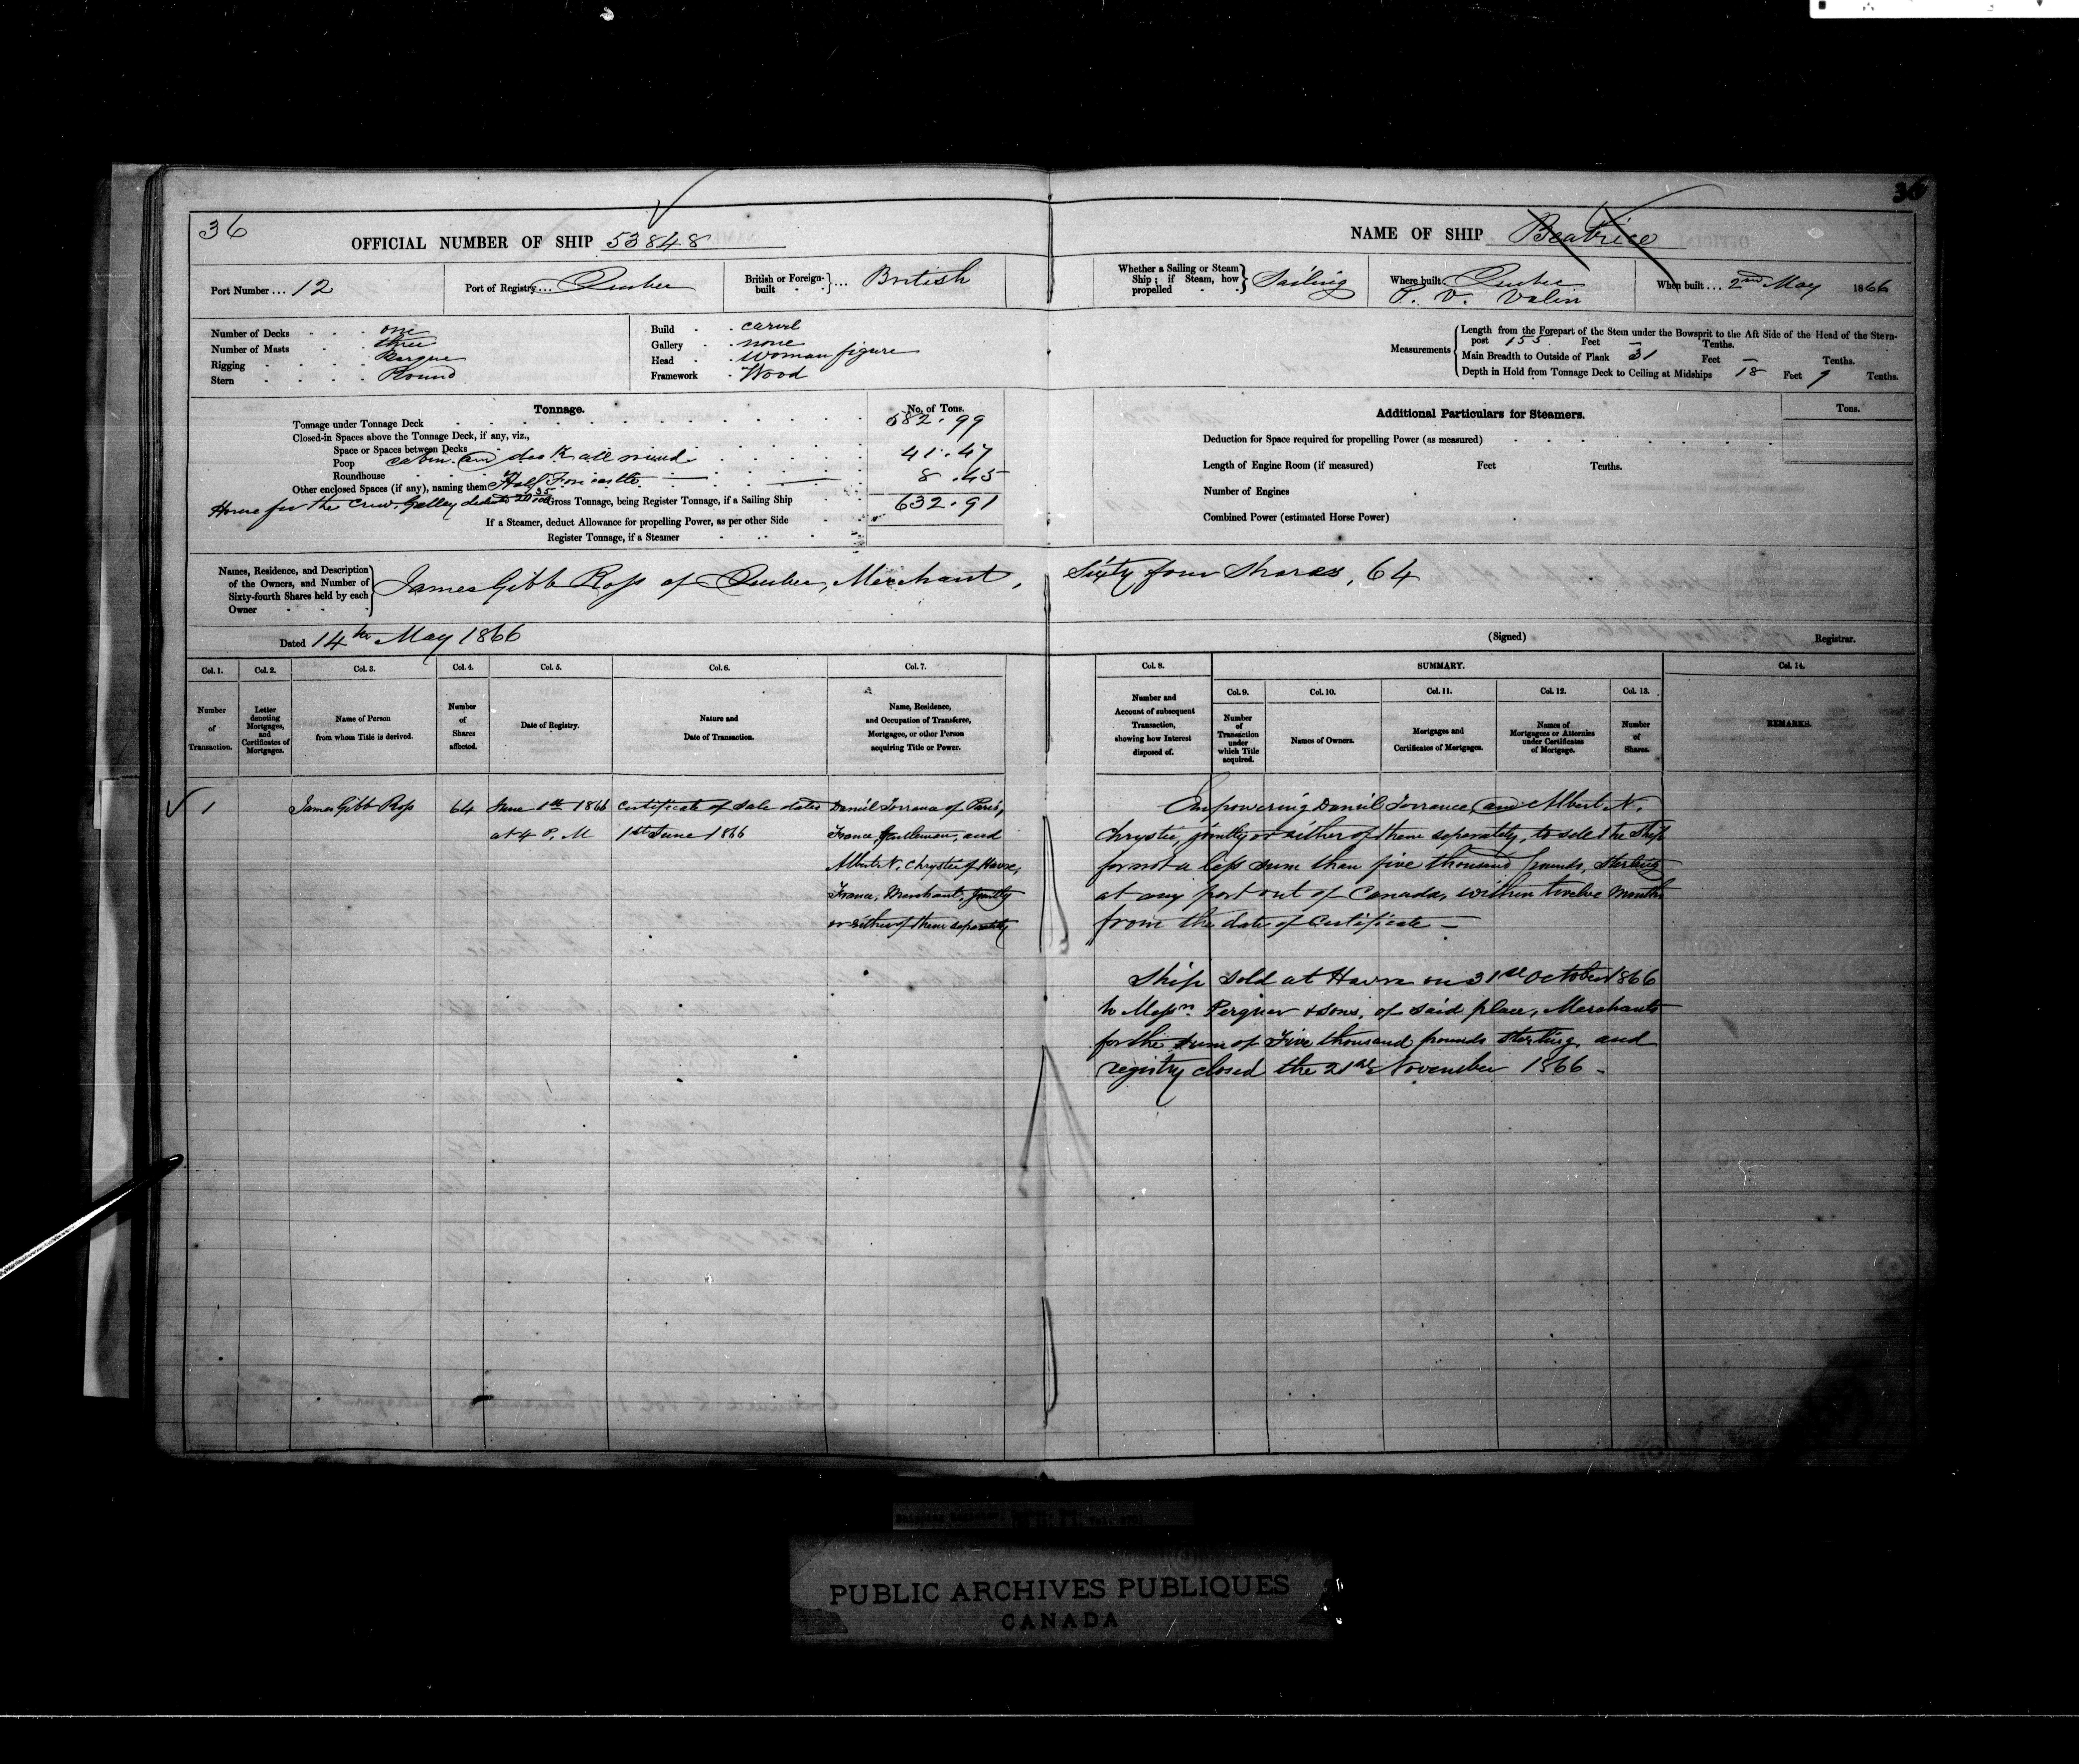 36
36
OFFICIAL NUMBER OF SHIP 53848
NAME OF SHIP Beatrice
Port Number ... 12
Port of Registry ... Quebec
British or Foreign-built } ... British
Whether a Sailing or Steam Ship; if Steam, how propelled } Sailing
Where built Quebec
P. V. Valin
When built ... 2nd May 1866
Number of Decks one
Number of Masts three
Rigging Barque
Stern Round
Build carvel
Gallery none
Head Woman figure
Framework Wood
Measurements
Length from the Forepart of the Stem under the Bowsprit to the Aft Side of the Head of the Stern-
post 155 Feet — Tenths.
Main Breadth to Outside of Plank 31 Feet — Tenths.
Depth in Hold from Tonnage Deck to Ceiling at Midships 18 Feet 9 Tenths.
Tonnage.
No. of Tons.
Tonnage under Tonnage Deck 582.99
Closed-in Spaces above the Tonnage Deck, if any, viz.,
Space or Spaces between Decks
Poop cabin on deck all round 41.47
Roundhouse
Other enclosed Spaces (if any), naming them Half Forecastle 8.45
House for the Crew, Galley deducted
Gross Tonnage, being Register Tonnage, if a Sailing Ship 632.91
If a Steamer, deduct Allowance for propelling Power, as per other Side
Register Tonnage, if a Steamer
Additional Particulars for Steamers.
Tons.
Deduction for Space required for propelling Power (as measured)
Length of Engine Room (if measured) Feet Tenths.
Number of Engines
Combined Power (estimated Horse Power)
Names, Residence, and Description
of the Owners, and Number of
Sixty-fourth Shares held by each
Owner
James Gibb Ross of Quebec, Merchant, Sixty four Shares, 64
Dated 14th May 1866
(Signed) Registrar.
Col. 1.
Number
of
Transaction.
Col. 2.
Letter
denoting
Mortgages,
and
Certificates of
Mortgages.
Col. 3.
Name of Person
from whom Title is derived.
Col. 4.
Number
of
Shares
affected.
Col. 5.
Date of Registry.
Col. 6.
Nature and
Date of Transaction.
Col. 7.
Name, Residence,
and Occupation of Transferee,
Mortgagee, or other Person
acquiring Title or Power.
Col. 8.
Number and
Account of subsequent
Transaction,
showing how Interest
disposed of.
SUMMARY.
Col. 9.
Number
of
Transaction
under
which Title
acquired.
Col. 10.
Names of Owners.
Col. 11.
Mortgages and
Certificates of Mortgages.
Col. 12.
Names of
Mortgagees or Attornies
under Certificates
of Mortgage.
Col. 13.
Number
of
Shares.
Col. 14.
REMARKS.
1
James Gibb Ross
64
June 1st 1866
at 4 P. M
Certificate of Sale dated
1st June 1866
Daniel Torrance of Paris,
France, Gentleman, and
Albert N. Chrystie of Havre,
France, Merchant, jointly
or either of them separately
Empowering Daniel Torrance and Albert N.
Chrystie, jointly or either of them separately, to sell the Ship
for not a less sum than five thousand pounds, Sterling
at any port out of Canada, within twelve Months
from the date of Certificate —
Ship sold at Havre on 31st October 1866
to Messrs. Perquer & sons, of said place, Merchants
for the sum of Five thousand pounds sterling, and
registry closed the 21st November 1866 —
PUBLIC ARCHIVES PUBLIQUES
CANADA